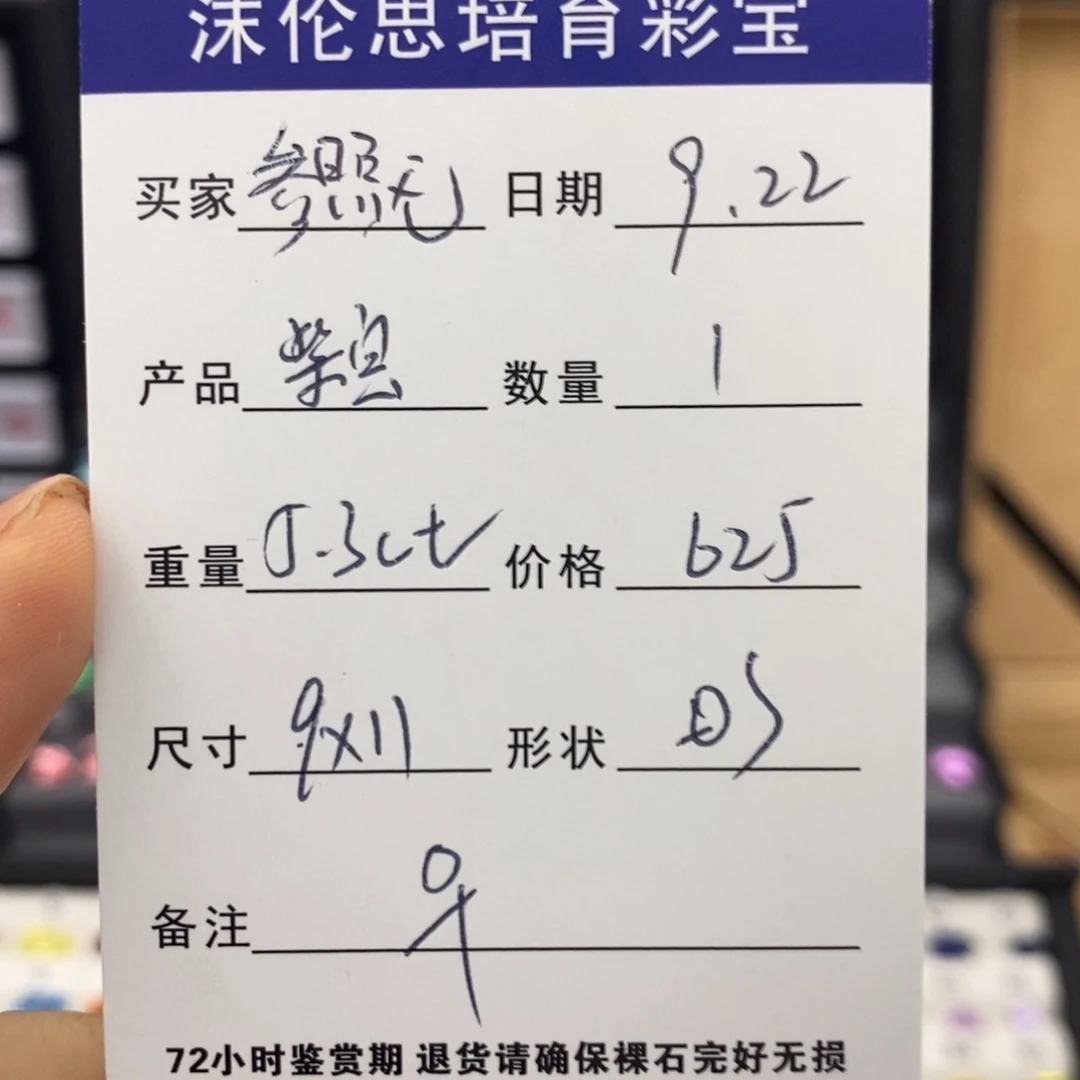 沫伦思培育彩宝
买家 参照无 日期 9.22
产品 紫宝 数量 1
重量 5.3ct 价格 625
尺寸 9x11 形状
备注
72小时鉴赏期 退货请确保裸石完好无损